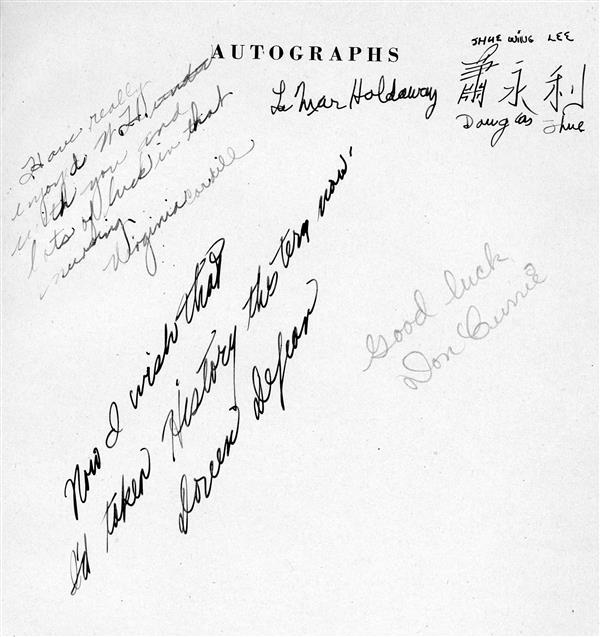 AUTOGRAPHS
Have really
enjoyed W. H.
with you and
lots of luck in that
nursing.
Virginia Cardill
La Mar Holdaway
JHUE WING LEE
蕭永利
Douglas Jhue
Now I wish that
I'd taken History this term now.
Doreen DeJean
Good luck
Don Currie